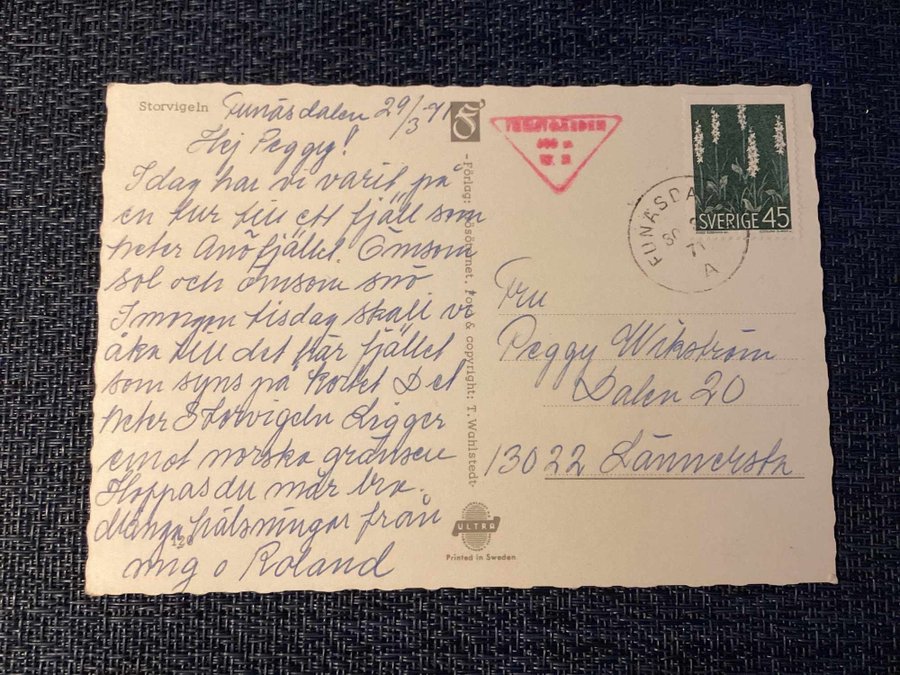 Storvigeln
Funäsdalen 29/3-71
Hej Peggy!
Idag har vi varit på
en tur till ett fjäll som
heter Anöfjället. Ömsom
sol och ömsom snö.
Imorgon tisdag skall vi
åka till det här fjället
som syns på kortet Det
heter Storvigeln Ligger
emot norska gränsen
Hoppas du mår bra.
Många hälsningar från
mig o Roland
120
- Förlag: Foto & copyright: T. Wahlstedt
ULTRA
Printed in Sweden
SVERIGE 45
FUNÄSDA
71
A
Fru
Peggy Wikström
Dalen 20
13022 Lännersta